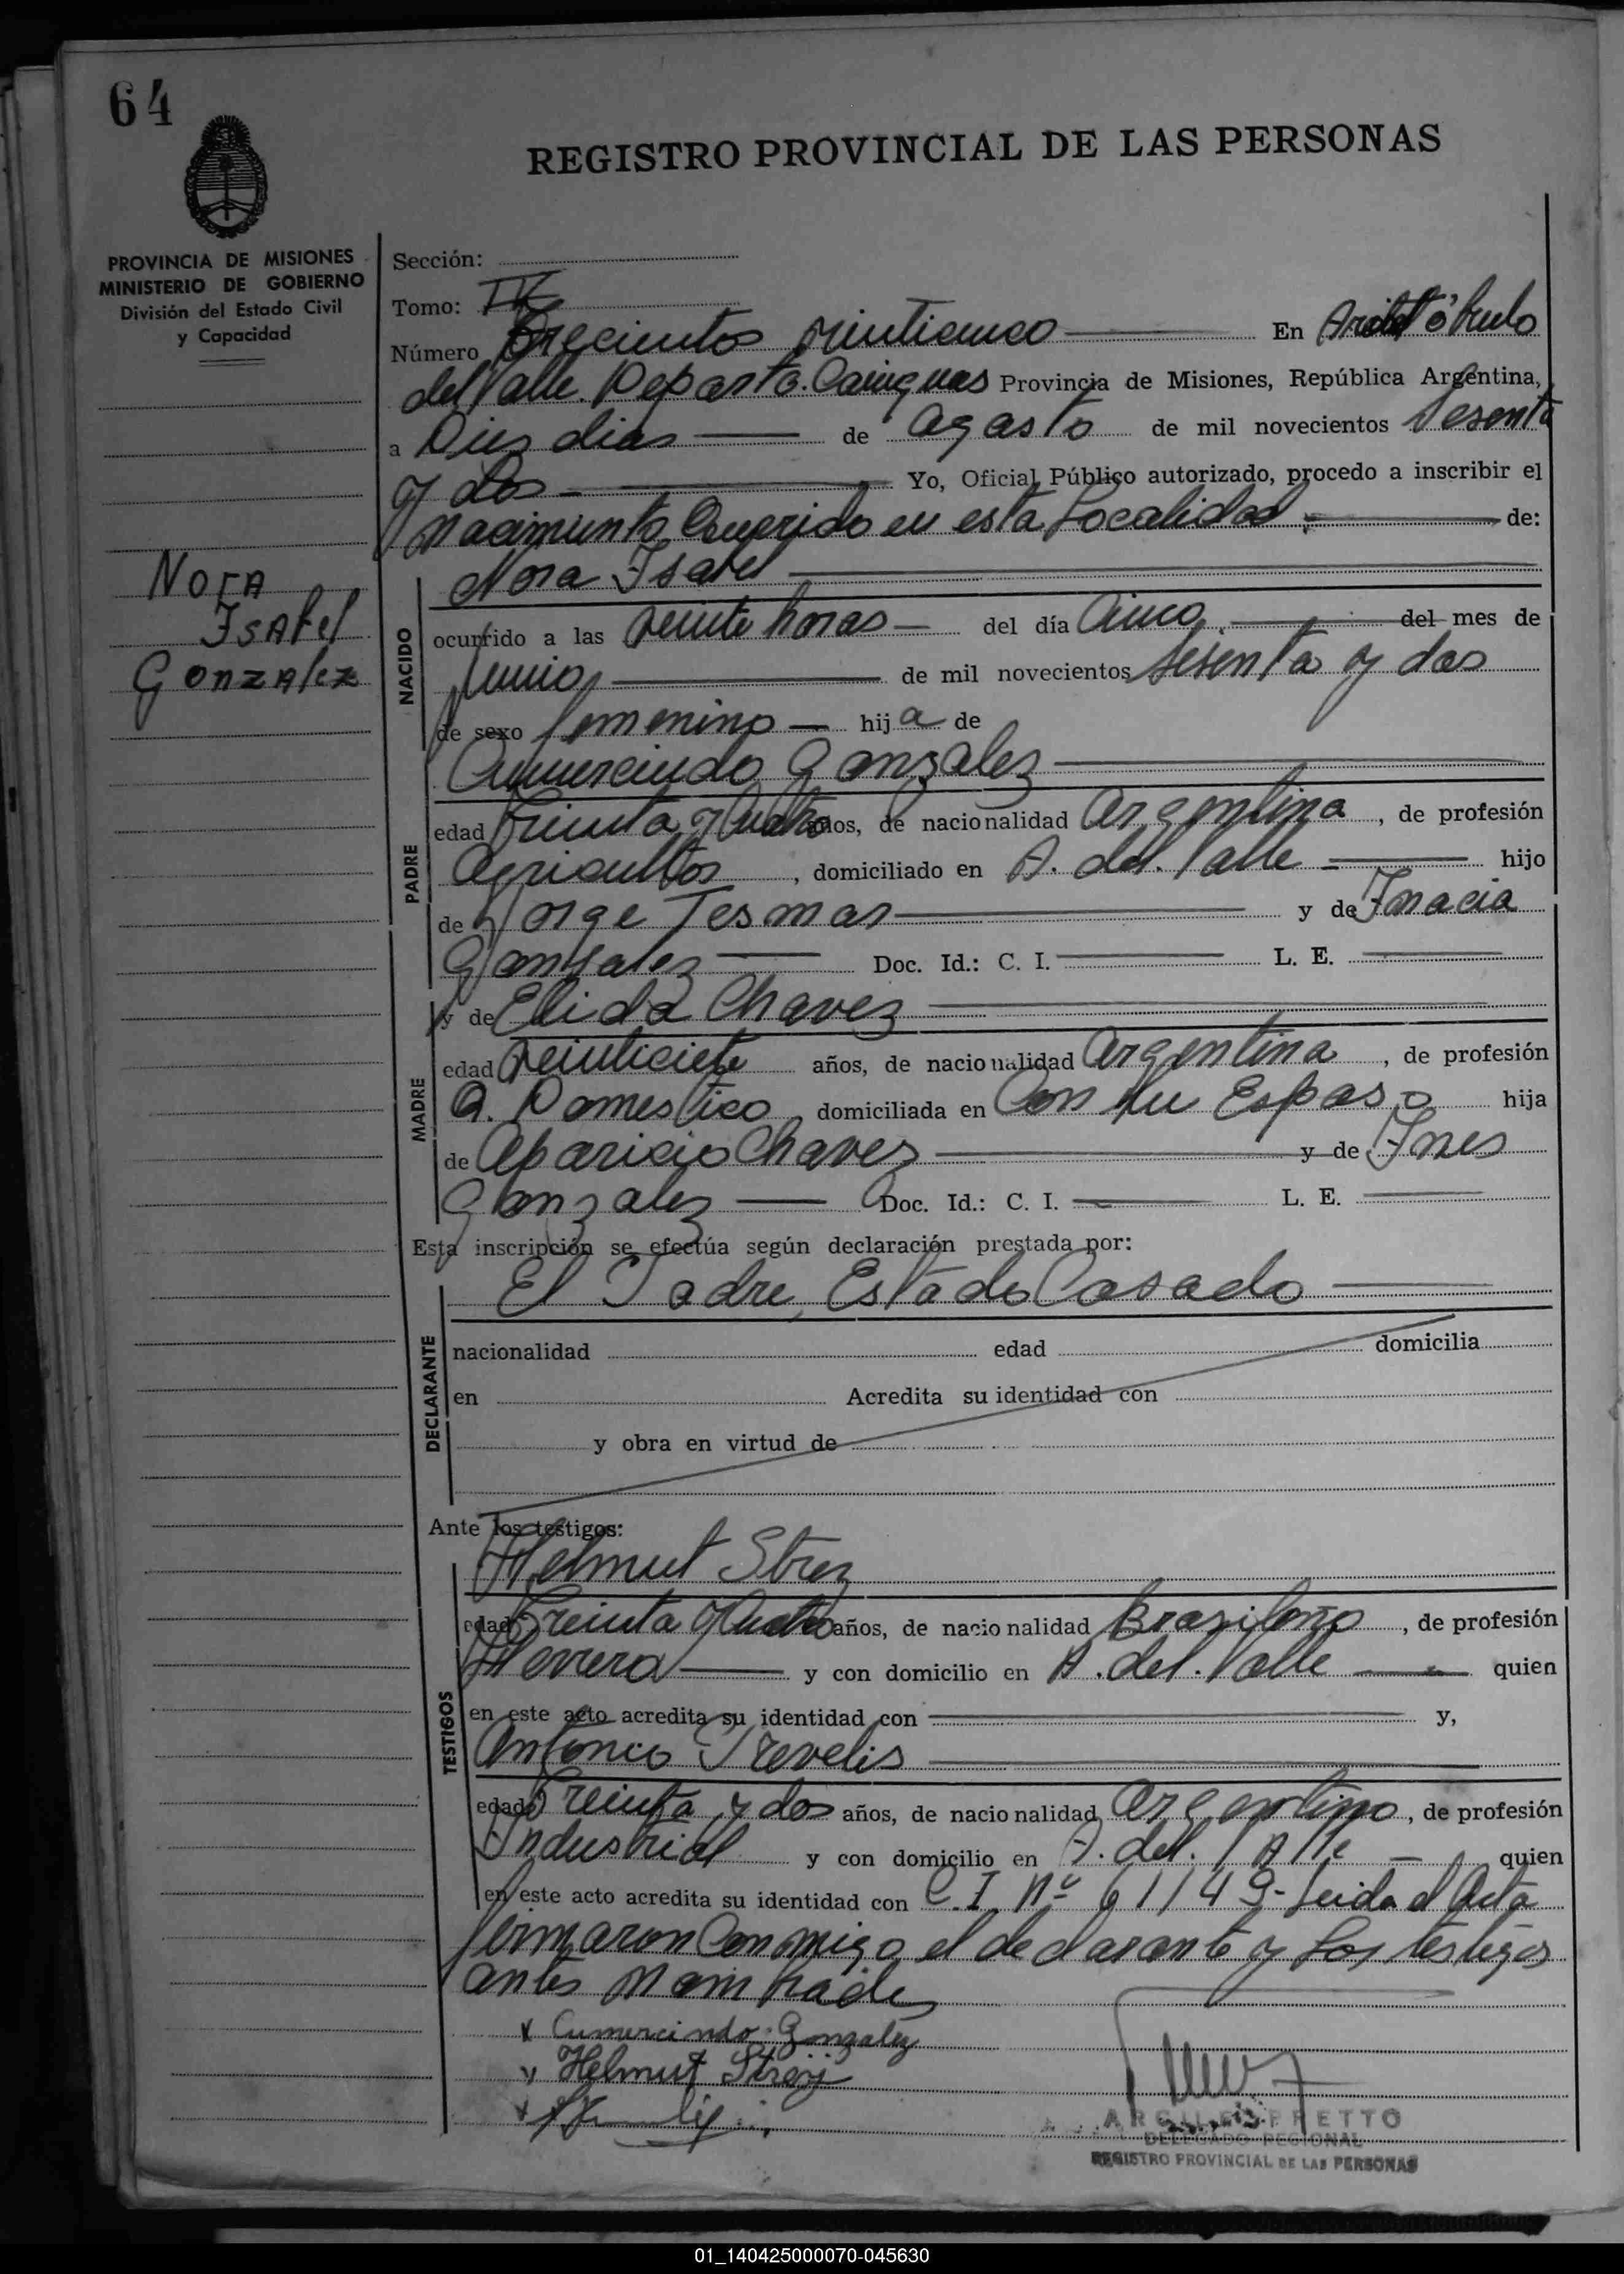 64
REGISTRO PROVINCIAL DE LAS PERSONAS
PROVINCIA DE MISIONES
MINISTERIO DE GOBIERNO
División del Estado Civil
y Capacidad
Nora
Isabel
Gonzalez
Sección:
Tomo: IV
Número Trecientos vinticinco En Aristóbulo
del Valle. Departo. Cainguas Provincia de Misiones, República Argentina,
a Diez dias de Agosto de mil novecientos Sesenta
y dos Yo, Oficial Público autorizado, procedo a inscribir el
Nacimiento Ocurrido en esta Localidad de:
Nora Isabel
NACIDO
ocurrido a las veinte horas del día Cinco del mes de
Junio de mil novecientos sesenta y dos
de sexo femenino hija de
Cumercindo Gonzalez
PADRE
edad Treinta y Cuatro años, de nacionalidad Argentina, de profesión
Agricultor, domiciliado en A. del. Valle hijo
de Jorge Tesmar y de Inacia
Gonzalez Doc. Id.: C. I. L. E.
y de Elida Chavez
MADRE
edad Veinticiete años, de nacionalidad Argentina, de profesión
Q. Domestico, domiciliada en Con su Esposo hija
de Aparicio Chavez y de Ines
Gonzalez Doc. Id.: C. I. L. E.
Esta inscripción se efectúa según declaración prestada por:
El Padre, Estado Casado
DECLARANTE
nacionalidad edad domicilia
en Acredita su identidad con
y obra en virtud de
Ante los testigos:
Helmut Strez
TESTIGOS
edad Treinta y Cuatro años, de nacionalidad Brasileño, de profesión
Herrero y con domicilio en A. del. Valle quien
en este acto acredita su identidad con y,
Antonio Trevelis
edad Treinta y dos años, de nacionalidad Argentino, de profesión
Industrial y con domicilio en A. del. Valle quien
en este acto acredita su identidad con C.I Nº 61149- Leida el Acta
firmaron Conmigo el declarante y los testigos
antes nombrados
x Cumercindo Gonzalez
x Helmut
x
PRETTO
DELEGADO REGIONAL
REGISTRO PROVINCIAL DE LAS PERSONAS
01_140425000070-045630